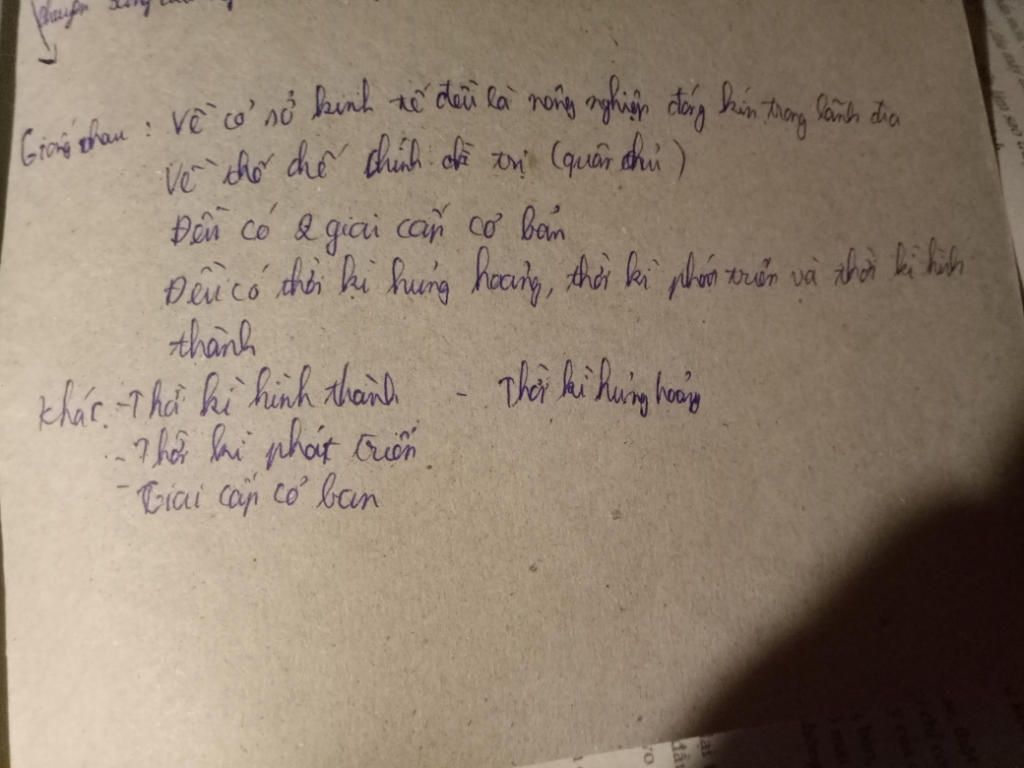 Giống nhau : Về cơ sở kinh tế đều là nông nghiệp đóng kín trong lãnh địa
Về thể chế chính trị (quân chủ)
Đều có 2 giai cấp cơ bản
Đều có thời kì hủng hoảng, thời kì phát triển và thời kì hình
thành
Khác: - Thời kì hình thành - Thời kì hủng hoảng
- Thời kì phát triển
- Giai cấp cơ ban